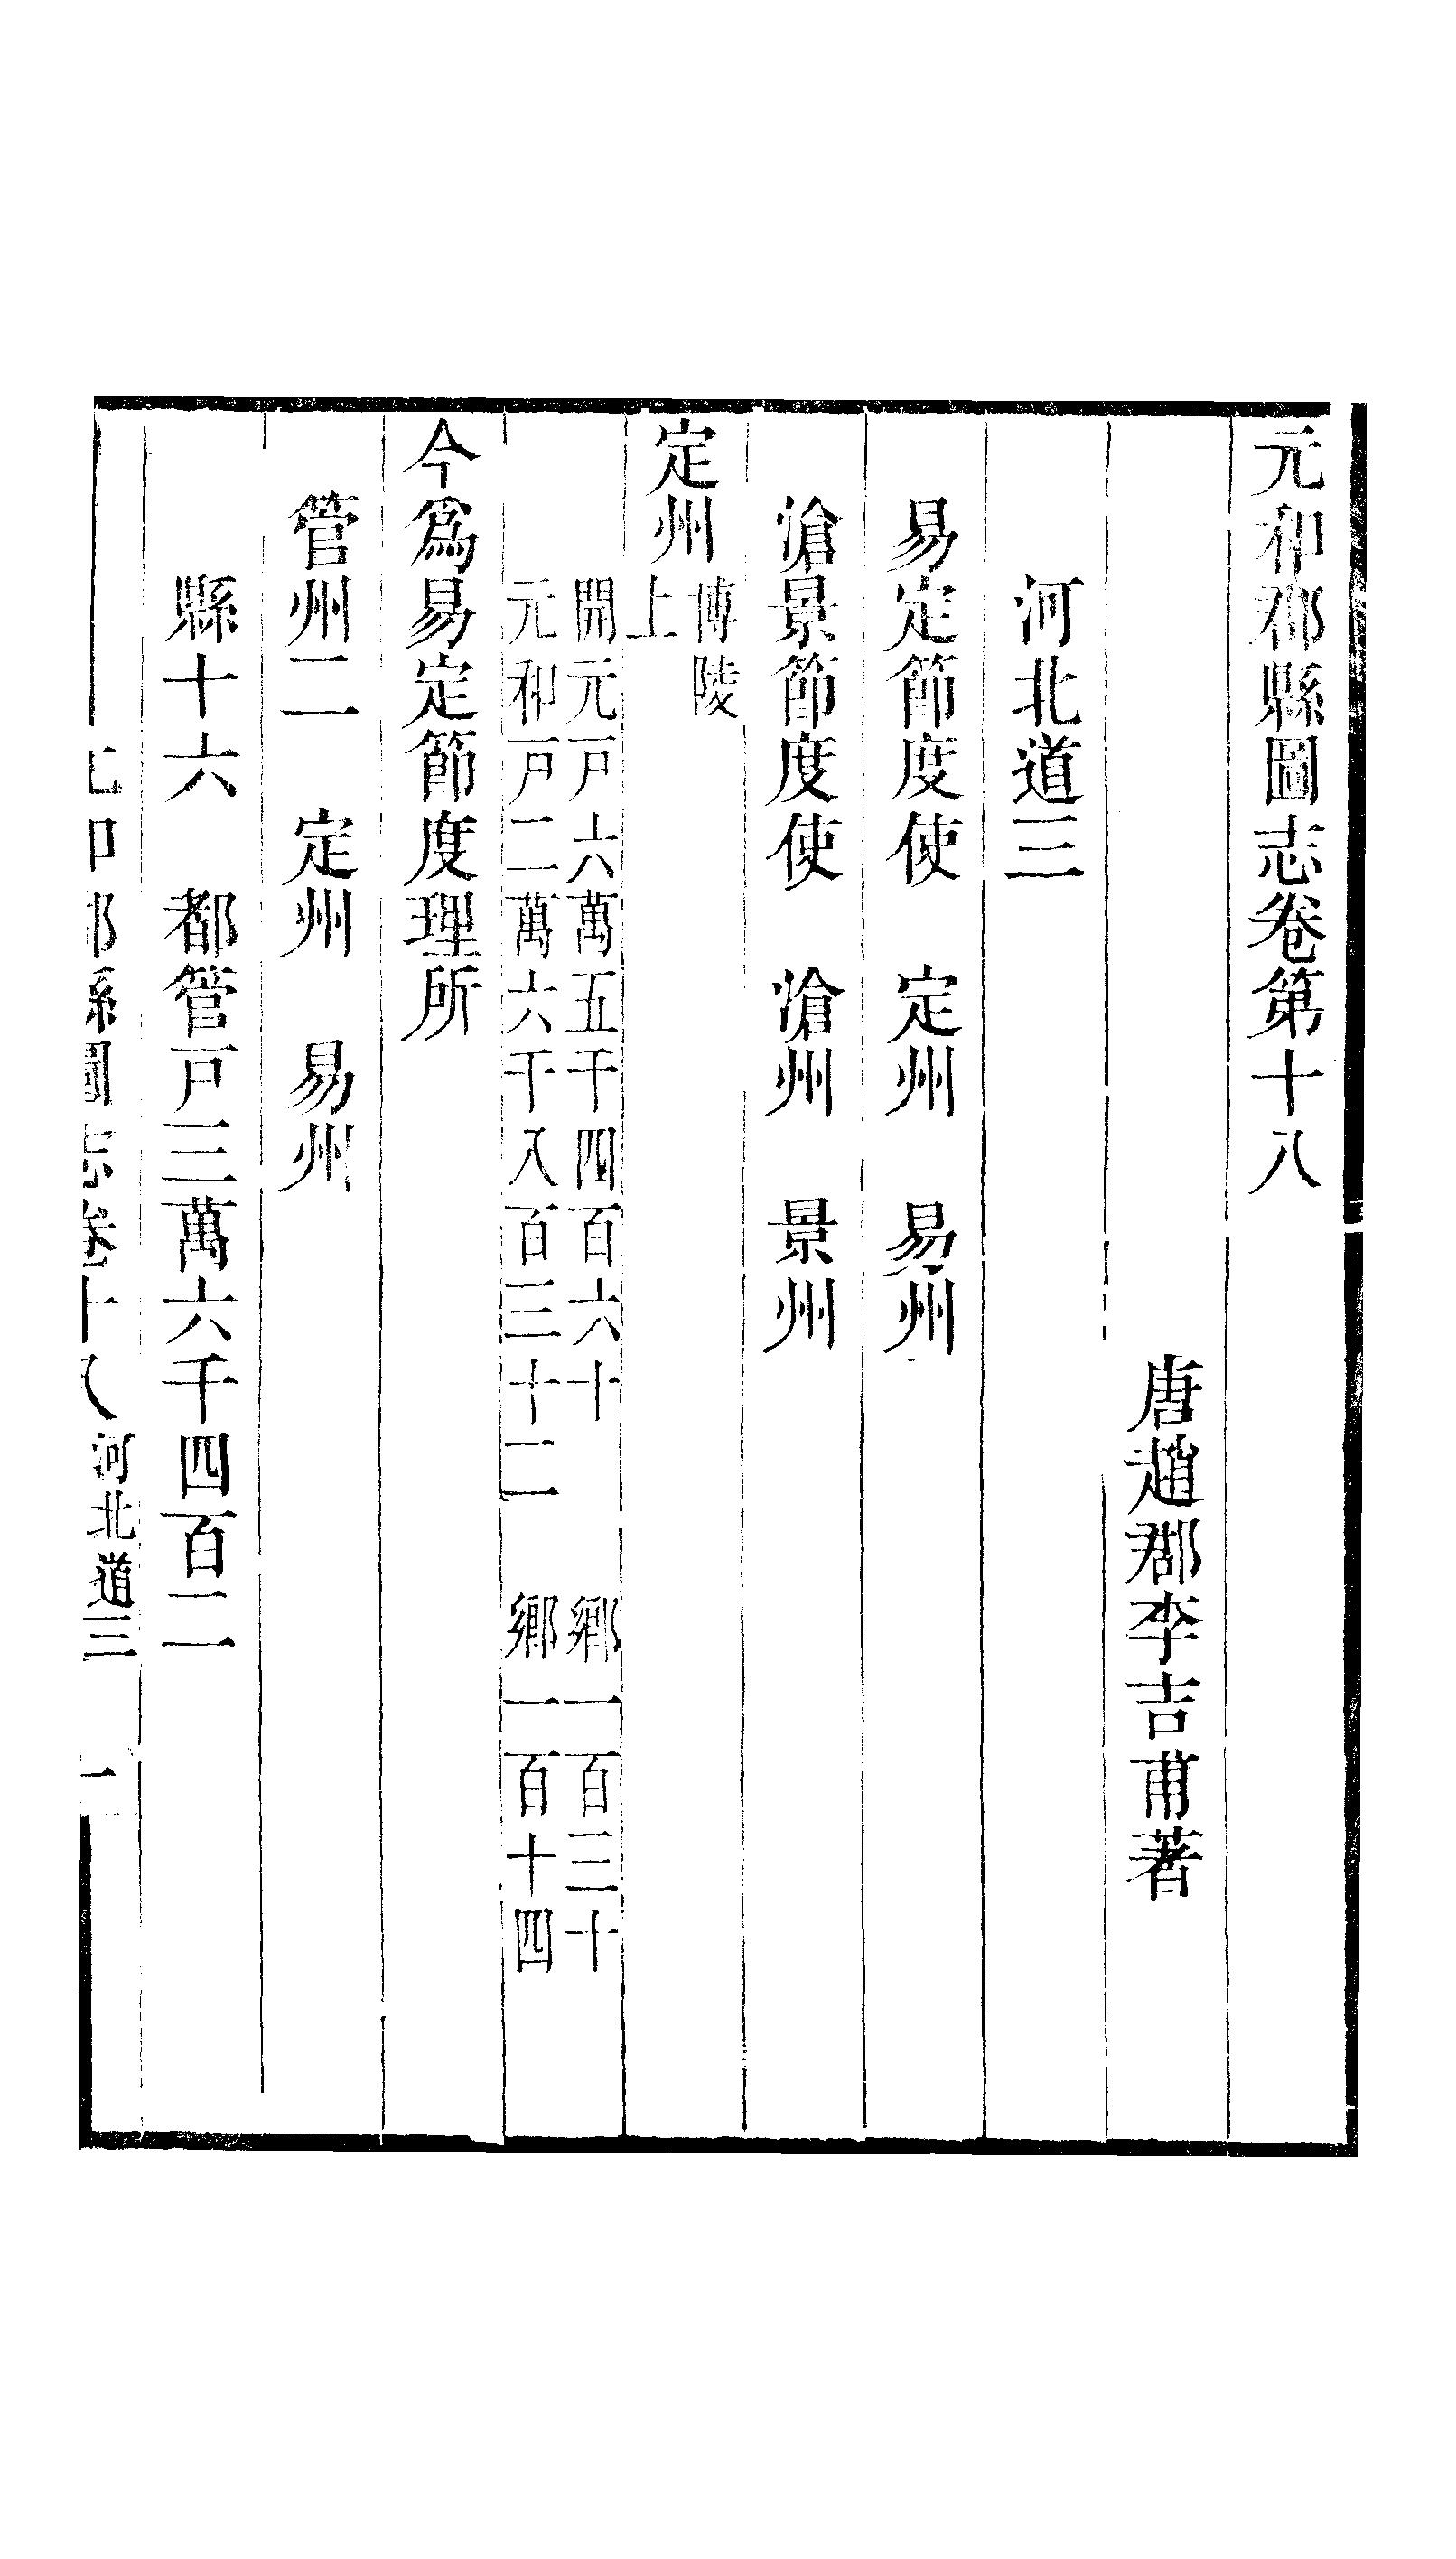 元和郡縣圖志卷第十八
唐趙郡李吉甫著
河北道三
易定節度使　定州　易州
滄景節度使　滄州　景州
定州
博陵
上
開元戸六萬五千四百六十　鄉一百三十
元和戸二萬六千八百三十二　鄉一百十四
今爲易定節度理所
管州二　定州　易州
縣十六　都管戸三萬六千四百二
元和郡縣圖志卷十八河北道三　一